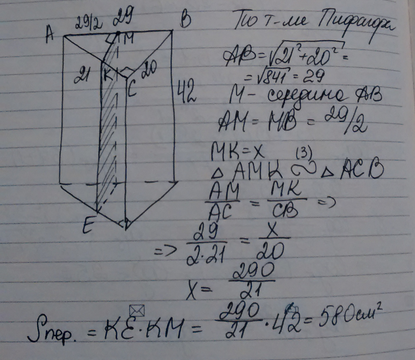 29/2 29
A M B
21 K 20
C 42
E
По т-ме Пифагора
AB = √21²+20² =
= √841 = 29
M - середина AB
AM = MB = 29/2
MK = x
(3)
△ AMK ∾ △ ACB
AM/AC = MK/CB =>
=> 29/2·21 = x/20
x = 290/21
Sпер. = KE·KM = 290/21 · 42 = 580 см²